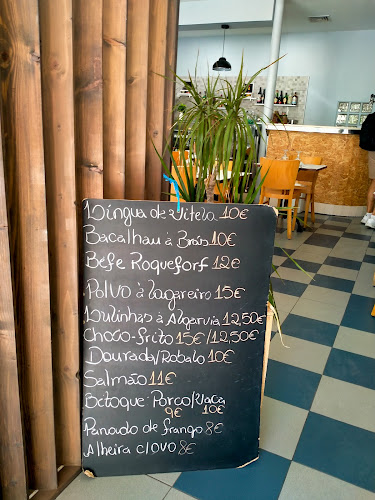 Lingua de Vitela 10€
Bacalhau à Brás 10€
Befe Roquefort 12€
Polvo à Lagareiro 15€
Lulinhas à Algarvia 12,50€
Choco-frito 15€/12,50€
Dourada/Robalo 10€
Salmão 11€
Bitoque Porco/Vaca
9€ 10€
Panado de frango 8€
Alheira c/ovo 8€